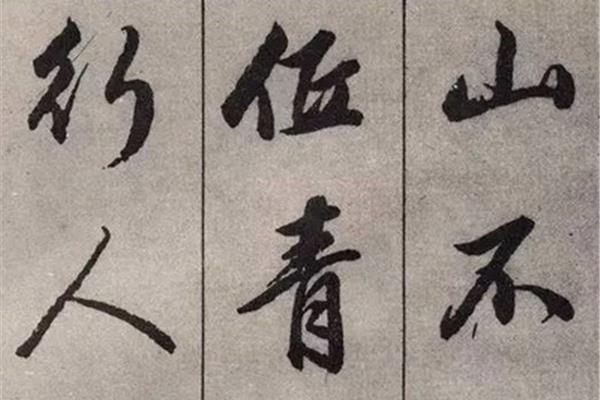 山不
低青
行人